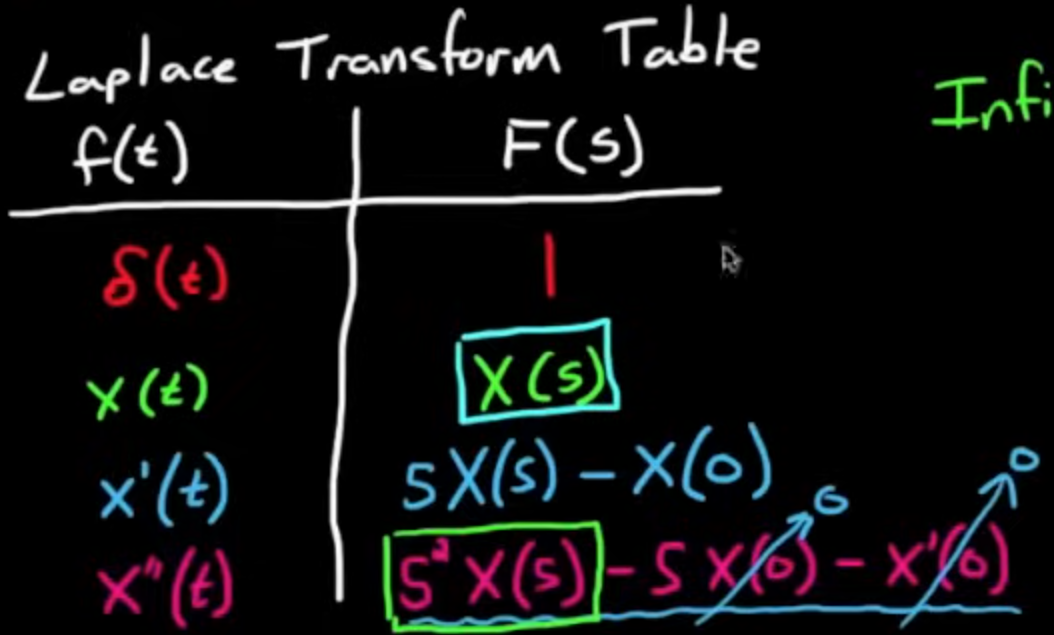 Laplace Transform Table
Infi
f(t) F(s)
δ(t) 1
x(t) X(s)
x'(t) sX(s) - x(0)
x"(t) s² X(s) - s x(0) - x'(0) 0 0